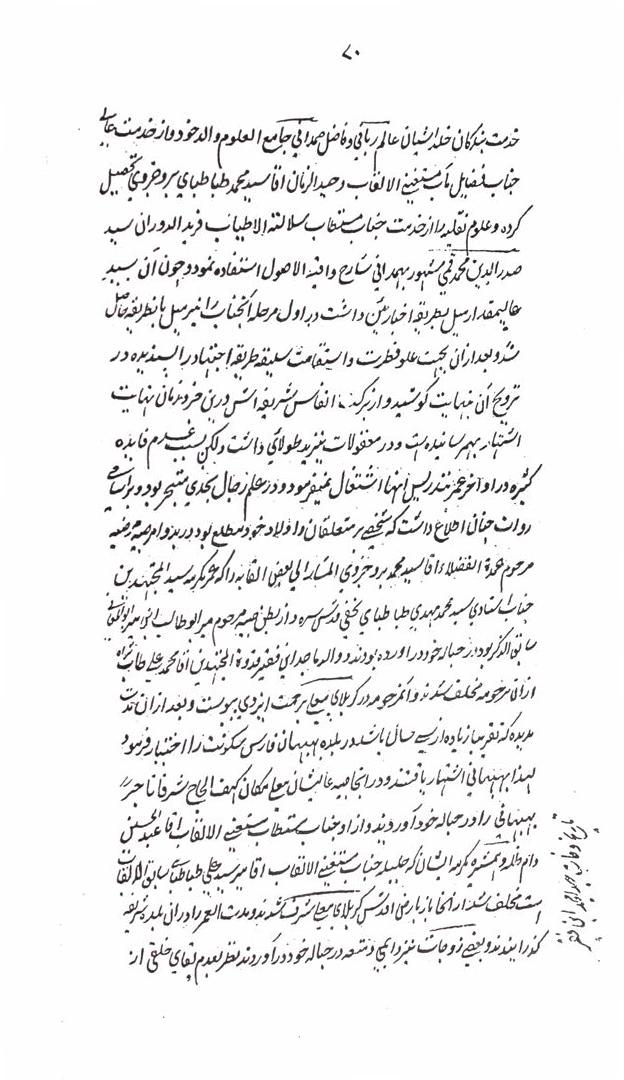 ۷۰
خدمت بندکان خلد اشیان عالم ربانی و فاضل صمدانی جامع العلوم والد خود و از خدمت عالی
جناب فضایل مآب مستغنی الالقاب وحید الزمان اقا سید محمد طباطبای بروجردی تحصیل
کرده و علوم نقلیه را از خدمت جناب مستطاب سلالة الاطیاب فرید الدوران سید
صدر الدین محمد قمی مشهور بهمدانی شارح وافیة الاصول استفاده نمود و چون آن سید
عالیمقدار میل بطریقه اخباریین داشت در اول مرحله آنجناب را نیز میل بانطریقه حاصل
شد و بعد از ان بجهت علو فطرت و استقامت سلیقه طریقه اجتهاد را پسندیده در
ترویج آن نهایت کوشید و از برکت انفاس شریفه اش درین جزو زمان نهایت
اشتهار بهم رسانیده است و در معقولات نیز ید طولای داشت ولکن بسبب عدم فایده
کثیره در اواخر عمر بتدریس انها اشتغال نمیفرمود و در علم رجال بجدی متبحر بود و بر اسامی
روات چنان اطلاع داشت که شخصی بر متعلقان و اولاد خود مطلع بود در بدو امر صبیه مرضیه
مرحوم عمدة الفضلاء اقا سید محمد بروجردی المشار الی بعض القابه را که عمه مکرمه سید المجتهدین
جناب استادی سید محمد مهدی طباطبای نجفی قدس سره و از بطن صبیه مرحوم میر ابو طالب ابن میر ابو المعالی
سابق الذکر بود در حباله خود در آورده بودند و والد ماجد این فقیر قدوة المجتهدین اقا محمد علی طاب ثراه
از ان مرحومه مخلف شدند و آنمرحومه در کربلای معلی برحمت ایزدی پیوست و بعد از ان مدت
مدیده که تقریبا زیاده از سی سال باشد در بلده بهبهان فارس سکونت را اختیار فرمود
لهذا ببهبهانی اشتهار یافتند و در انجا صبیه عالیشان معلی مکان کهف الحاج شرفا تاجر
بهبهانی را در حباله خود آوردند و از او جناب مستطاب مستغنی الالقاب اقا عبد الحسین
دام ظله و همشیره مکرمه ایشان که حلیله جناب مستغنی الالقاب اقا میر سید علی طباطبای سابق الالقاب
است مخلف شد از آنجا باز بارض اقدس کربلای معلی مشرف شدند و مدت العمر را در ان بلده شریفه
کذرانیدند و بعضی زوجات نیز دایمی و متعه در حباله خود در آوردند نظر بعدم بقای خلفی از
تاریخ وفات جد امجد این فقیر